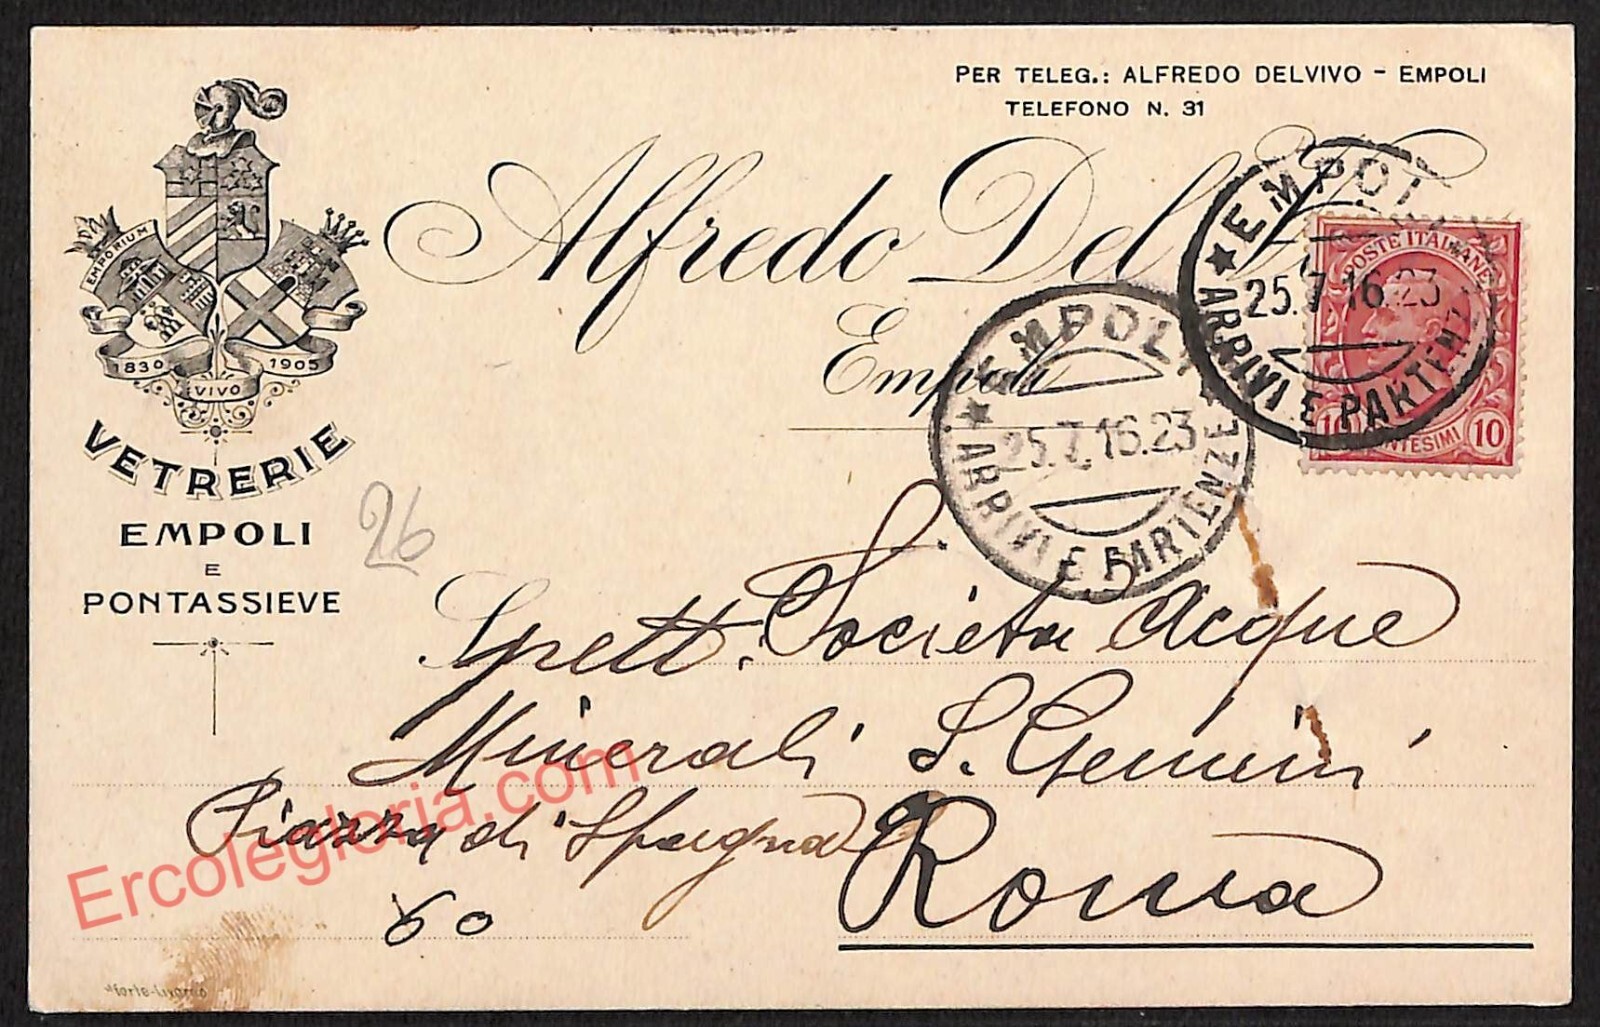 PER TELEG.: ALFREDO DELVIVO - EMPOLI
TELEFONO N. 31
Alfredo Del
Empoli
EMPORIUM
1830
1905
VIVO
VETRERIE
EMPOLI
E
PONTASSIEVE
26
EMPOLI
25.7.16.23
ARRIVI E PARTENZE
EMPOLI
25.7.16.23
ARRIVI E PARTENZE
POSTE ITALIANE
10 CENTESIMI 10
Spett. Società Acque
Minerali S. Gemini
Piazza di Spagna
60
Roma
Ercolegloria.com